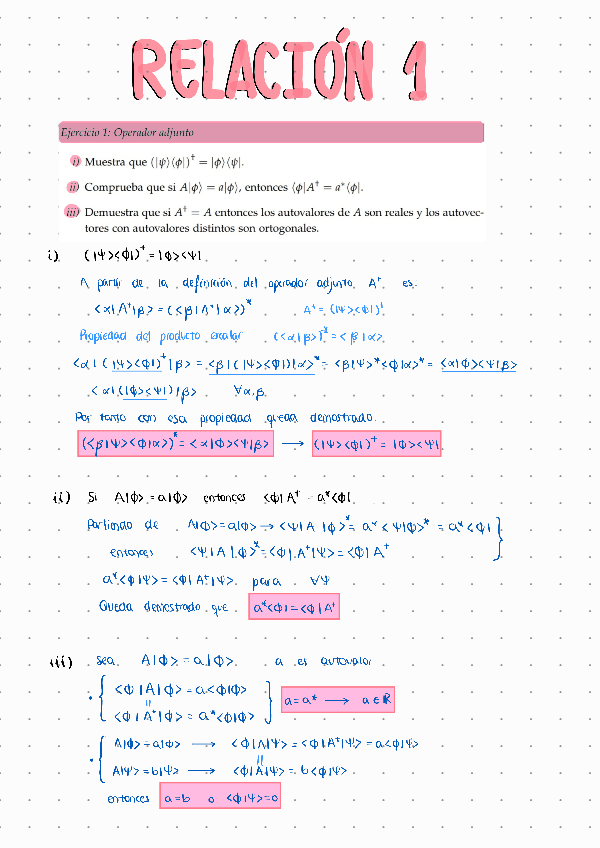 RELACIÓN 1
Ejercicio 1: Operador adjunto
i) Muestra que (|ψ⟩⟨ϕ|)† = |ϕ⟩⟨ψ|.
ii) Comprueba que si A|ϕ⟩ = a|ϕ⟩, entonces ⟨ϕ|A† = a*⟨ϕ|.
iii) Demuestra que si A† = A entonces los autovalores de A son reales y los autovec-
tores con autovalores distintos son ortogonales.
i) (|Ψ><Φ|)† = |Φ><Ψ|.
A partir de la definición del operador adjunto A† es:
<α|A†|β> = (<β|A†|α>)* A† = (|Ψ><Φ|)†
Propiedad del producto escalar (<α|β>)* = <β|α>
<α|(|Ψ><Φ|)†|β> = <β|(|Ψ><Φ|)|α>* = <β|Ψ>*<Φ|α>* = <α|Φ><Ψ|β>
<α|(|Φ><Ψ|)|β> ∀α,β
Por tanto con esa propiedad queda demostrado.
(<β|Ψ><Φ|α>)* = <α|Φ><Ψ|β> → (|Ψ><Φ|)† = |Φ><Ψ|
ii) Si A|Φ> = a|Φ> entonces <Φ|A† = a*<Φ|
Partiendo de A|Φ> = a|Φ> → <Ψ|A|Φ>* = a*<Ψ|Φ>* = a*<Φ|
entonces <Ψ|A|Φ>* = <Φ|A†|Ψ> = <Φ|A†
a*<Φ|Ψ> = <Φ|A†|Ψ> para ∀Ψ
Queda demostrado que a*<Φ| = <Φ|A†
iii) Sea A|Φ> = a|Φ> a es autovalor
• <Φ|A|Φ> = a<Φ|Φ>
=
<Φ|A†|Φ> = a*<Φ|Φ>
a = a* → a ∈ ℝ
• A|Φ> = a|Φ> → <Φ|A|Ψ> = <Φ|A†|Ψ> = a<Φ|Ψ>
=
A|Ψ> = b|Ψ> → <Φ|A|Ψ> = b<Φ|Ψ>
entonces a = b o <Φ|Ψ> = 0